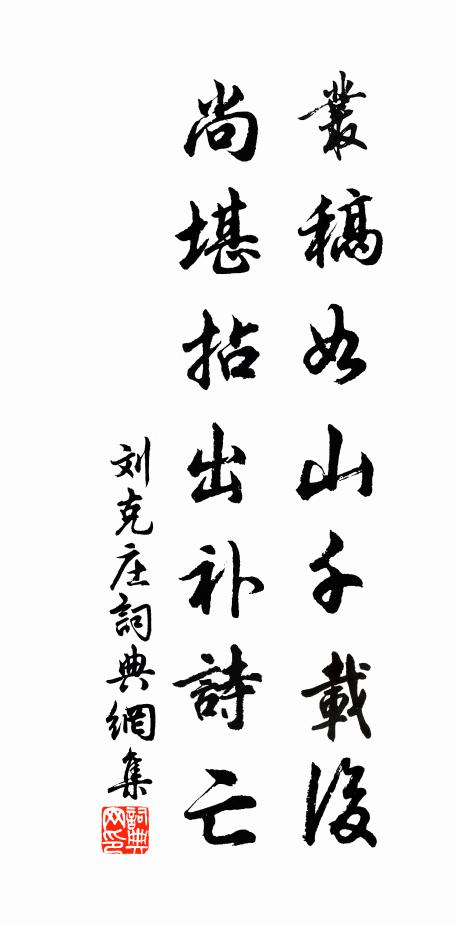 叢稿如山千載後
尚堪拈出补詩亡
刘克庄詞典網集
詞典网印